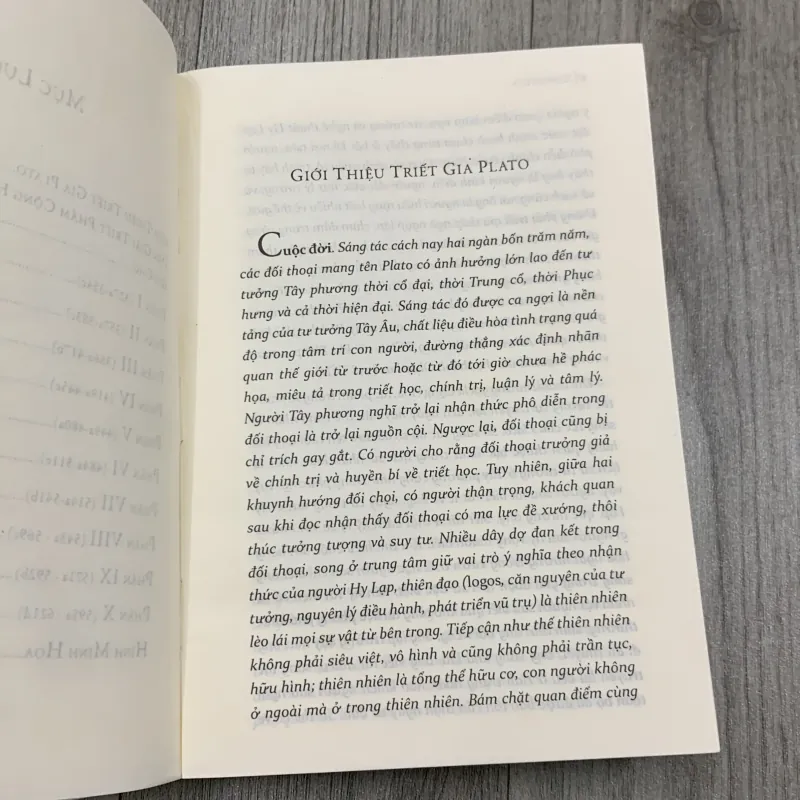 MỤC LỤC
PHẦN VI
PHẦN VII
PHẦN VIII
PHẦN IX
PHẦN X
HÌNH MINH HỌA
GIỚI THIỆU TRIẾT GIA PLATO
Cuộc đời. Sáng tác cách nay hai ngàn bốn trăm năm,
các đối thoại mang tên Plato có ảnh hưởng lớn lao đến tư
tưởng Tây phương thời cổ đại, thời Trung cổ, thời Phục
hưng và cả thời hiện đại. Sáng tác đó được ca ngợi là nền
tảng của tư tưởng Tây Âu, chất liệu điều hòa tình trạng quá
độ trong tâm trí con người, đường thẳng xác định nhãn
quan thế giới từ trước hoặc từ đó tới giờ chưa hề phác
họa, miêu tả trong triết học, chính trị, luận lý và tâm lý.
Người Tây phương nghĩ trở lại nhận thức phô diễn trong
đối thoại là trở lại nguồn cội. Ngược lại, đối thoại cũng bị
chỉ trích gay gắt. Có người cho rằng đối thoại trưởng giả
về chính trị và huyền bí về triết học. Tuy nhiên, giữa hai
khuynh hướng đối chọi, có người thận trọng, khách quan
sau khi đọc nhận thấy đối thoại có ma lực đề xướng, thôi
thúc tưởng tượng và suy tư. Nhiều dây dợ đan kết trong
đối thoại, song ở trung tâm giữ vai trò ý nghĩa theo nhận
thức của người Hy Lạp, thiên đạo (logos, căn nguyên của tư
tưởng, nguyên lý điều hành, phát triển vũ trụ) là thiên nhiên
lèo lái mọi sự vật từ bên trong. Tiếp cận như thế thiên nhiên
không phải siêu việt, vô hình và cũng không phải trần tục,
hữu hình; thiên nhiên là tổng thể hữu cơ, con người không
ở ngoài mà ở trong thiên nhiên. Bám chặt quan điểm cùng